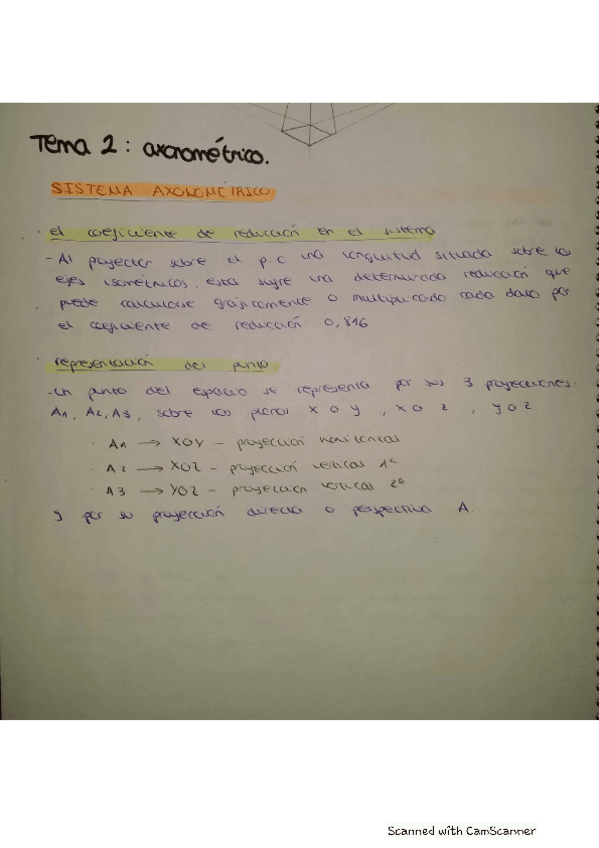 Tema 2: axonométrico.
SISTEMA AXONOMÉTRICO
· el coeficiente de reducción en el sistema
- Al proyectar sobre el p.c una longuitud situada sobre los
ejes isométricos, esta sufre una determinada reducción que
puede calcularse gráficamente o multiplicado cada dato por
el coeficiente de reducción 0,816
· representación del punto
- un punto del espacio se representa por sus 3 proyecciones:
A1, A2, A3, sobre los planos X O Y, X O Z, Y O Z
· A1 → XOY - proyección horizontal
· A2 → XOZ - proyección vertical 1ª
· A3 → YOZ - proyección vertical 2ª
y por su proyección directa o perspectiva A.
Scanned with CamScanner